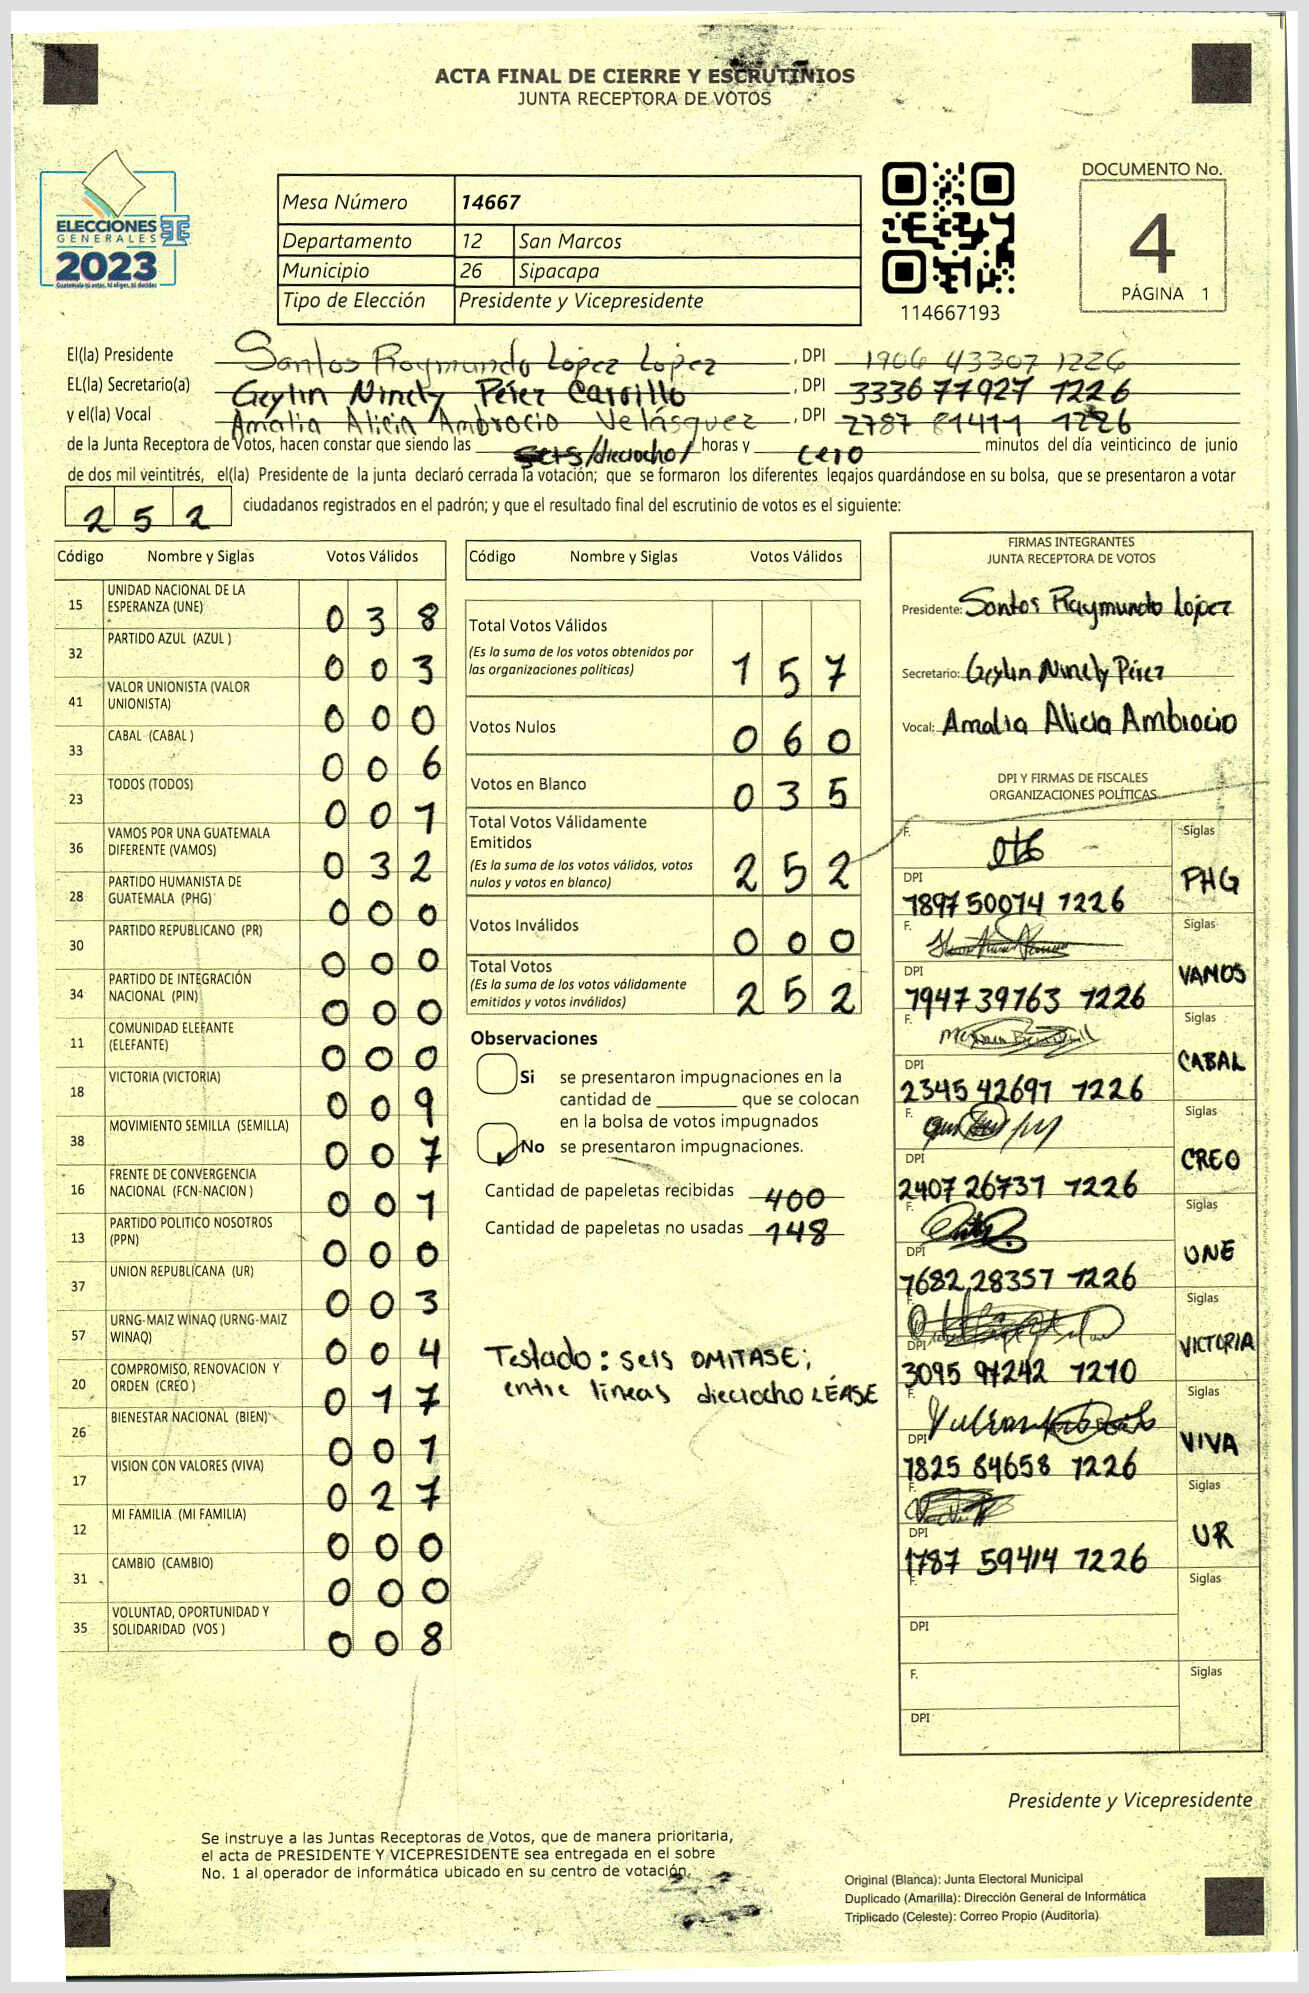 ACTA FINAL DE CIERRE Y ESCRUTINIOS
JUNTA RECEPTORA DE VOTOS
ELECCIONES
GENERALES
2023
Guatemala tú votas, tú eliges, tú decides
Mesa Número 14667
Departamento 12 San Marcos
Municipio 26 Sipacapa
Tipo de Elección Presidente y Vicepresidente
114667193
DOCUMENTO No.
4
PÁGINA 1
El(la) Presidente Santos Raymundo López López, DPI 1906 43307 1226
EL(la) Secretario(a) Geylin Ninely Pérez Carrillo, DPI 3336 77927 1226
y el(la) Vocal Amalia Alicia Ambrocio Velásquez, DPI 2787 81411 1226
de la Junta Receptora de Votos, hacen constar que siendo las seis /dieciocho/ horas y cero minutos del día veinticinco de junio
de dos mil veintitrés, el(la) Presidente de la junta declaró cerrada la votación; que se formaron los diferentes legajos guardándose en su bolsa, que se presentaron a votar
252 ciudadanos registrados en el padrón; y que el resultado final del escrutinio de votos es el siguiente:
Código Nombre y Siglas Votos Válidos
15 UNIDAD NACIONAL DE LA ESPERANZA (UNE) 038
32 PARTIDO AZUL (AZUL ) 003
41 VALOR UNIONISTA (VALOR UNIONISTA) 000
33 CABAL (CABAL ) 006
23 TODOS (TODOS) 001
36 VAMOS POR UNA GUATEMALA DIFERENTE (VAMOS) 032
28 PARTIDO HUMANISTA DE GUATEMALA (PHG) 000
30 PARTIDO REPUBLICANO (PR) 000
34 PARTIDO DE INTEGRACIÓN NACIONAL (PIN) 000
11 COMUNIDAD ELEFANTE (ELEFANTE) 000
18 VICTORIA (VICTORIA) 009
38 MOVIMIENTO SEMILLA (SEMILLA) 007
16 FRENTE DE CONVERGENCIA NACIONAL (FCN-NACION ) 001
13 PARTIDO POLITICO NOSOTROS (PPN) 000
37 UNION REPUBLICANA (UR) 003
57 URNG-MAIZ WINAQ (URNG-MAIZ WINAQ) 004
20 COMPROMISO, RENOVACION Y ORDEN (CREO ) 017
26 BIENESTAR NACIONAL (BIEN) 001
17 VISION CON VALORES (VIVA) 027
12 MI FAMILIA (MI FAMILIA) 000
31 CAMBIO (CAMBIO) 000
35 VOLUNTAD, OPORTUNIDAD Y SOLIDARIDAD (VOS ) 008
Código Nombre y Siglas Votos Válidos
Total Votos Válidos
(Es la suma de los votos obtenidos por
las organizaciones políticas) 157
Votos Nulos 060
Votos en Blanco 035
Total Votos Válidamente
Emitidos
(Es la suma de los votos válidos, votos
nulos y votos en blanco) 252
Votos Inválidos 000
Total Votos
(Es la suma de los votos válidamente
emitidos y votos inválidos) 252
Observaciones
Si se presentaron impugnaciones en la
cantidad de ________ que se colocan
en la bolsa de votos impugnados
No se presentaron impugnaciones.
Cantidad de papeletas recibidas 400
Cantidad de papeletas no usadas 148
Testado: seis OMITASE;
entre líneas dieciocho LÉASE
FIRMAS INTEGRANTES
JUNTA RECEPTORA DE VOTOS
Presidente: Santos Raymundo López
Secretario: Geylin Ninely Pérez
Vocal: Amalia Alicia Ambrocio
DPI Y FIRMAS DE FISCALES
ORGANIZACIONES POLÍTICAS
F. Siglas
DPI 1897 50074 1226 PHG
F. Siglas
DPI 1947 39763 1226 VAMOS
F. Siglas
DPI 2345 42691 1226 CABAL
F. Siglas
DPI 2407 26731 1226 CREO
F. Siglas
DPI 1682 28357 1226 UNE
F. Siglas
DPI 3095 91242 1210 VICTORIA
F. Siglas
DPI 1825 84658 1226 VIVA
F. Siglas
DPI 1787 59414 1226 UR
F. Siglas
DPI
F. Siglas
DPI
Presidente y Vicepresidente
Se instruye a las Juntas Receptoras de Votos, que de manera prioritaria,
el acta de PRESIDENTE Y VICEPRESIDENTE sea entregada en el sobre
No. 1 al operador de informática ubicado en su centro de votación.
Original (Blanca): Junta Electoral Municipal
Duplicado (Amarilla): Dirección General de Informática
Triplicado (Celeste): Correo Propio (Auditoría)